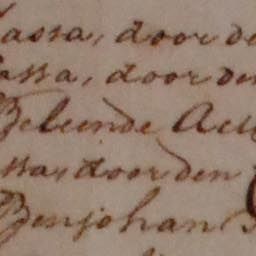 assa, door de
assa, door den
Beleende Act
ssa, door den
Benjohan